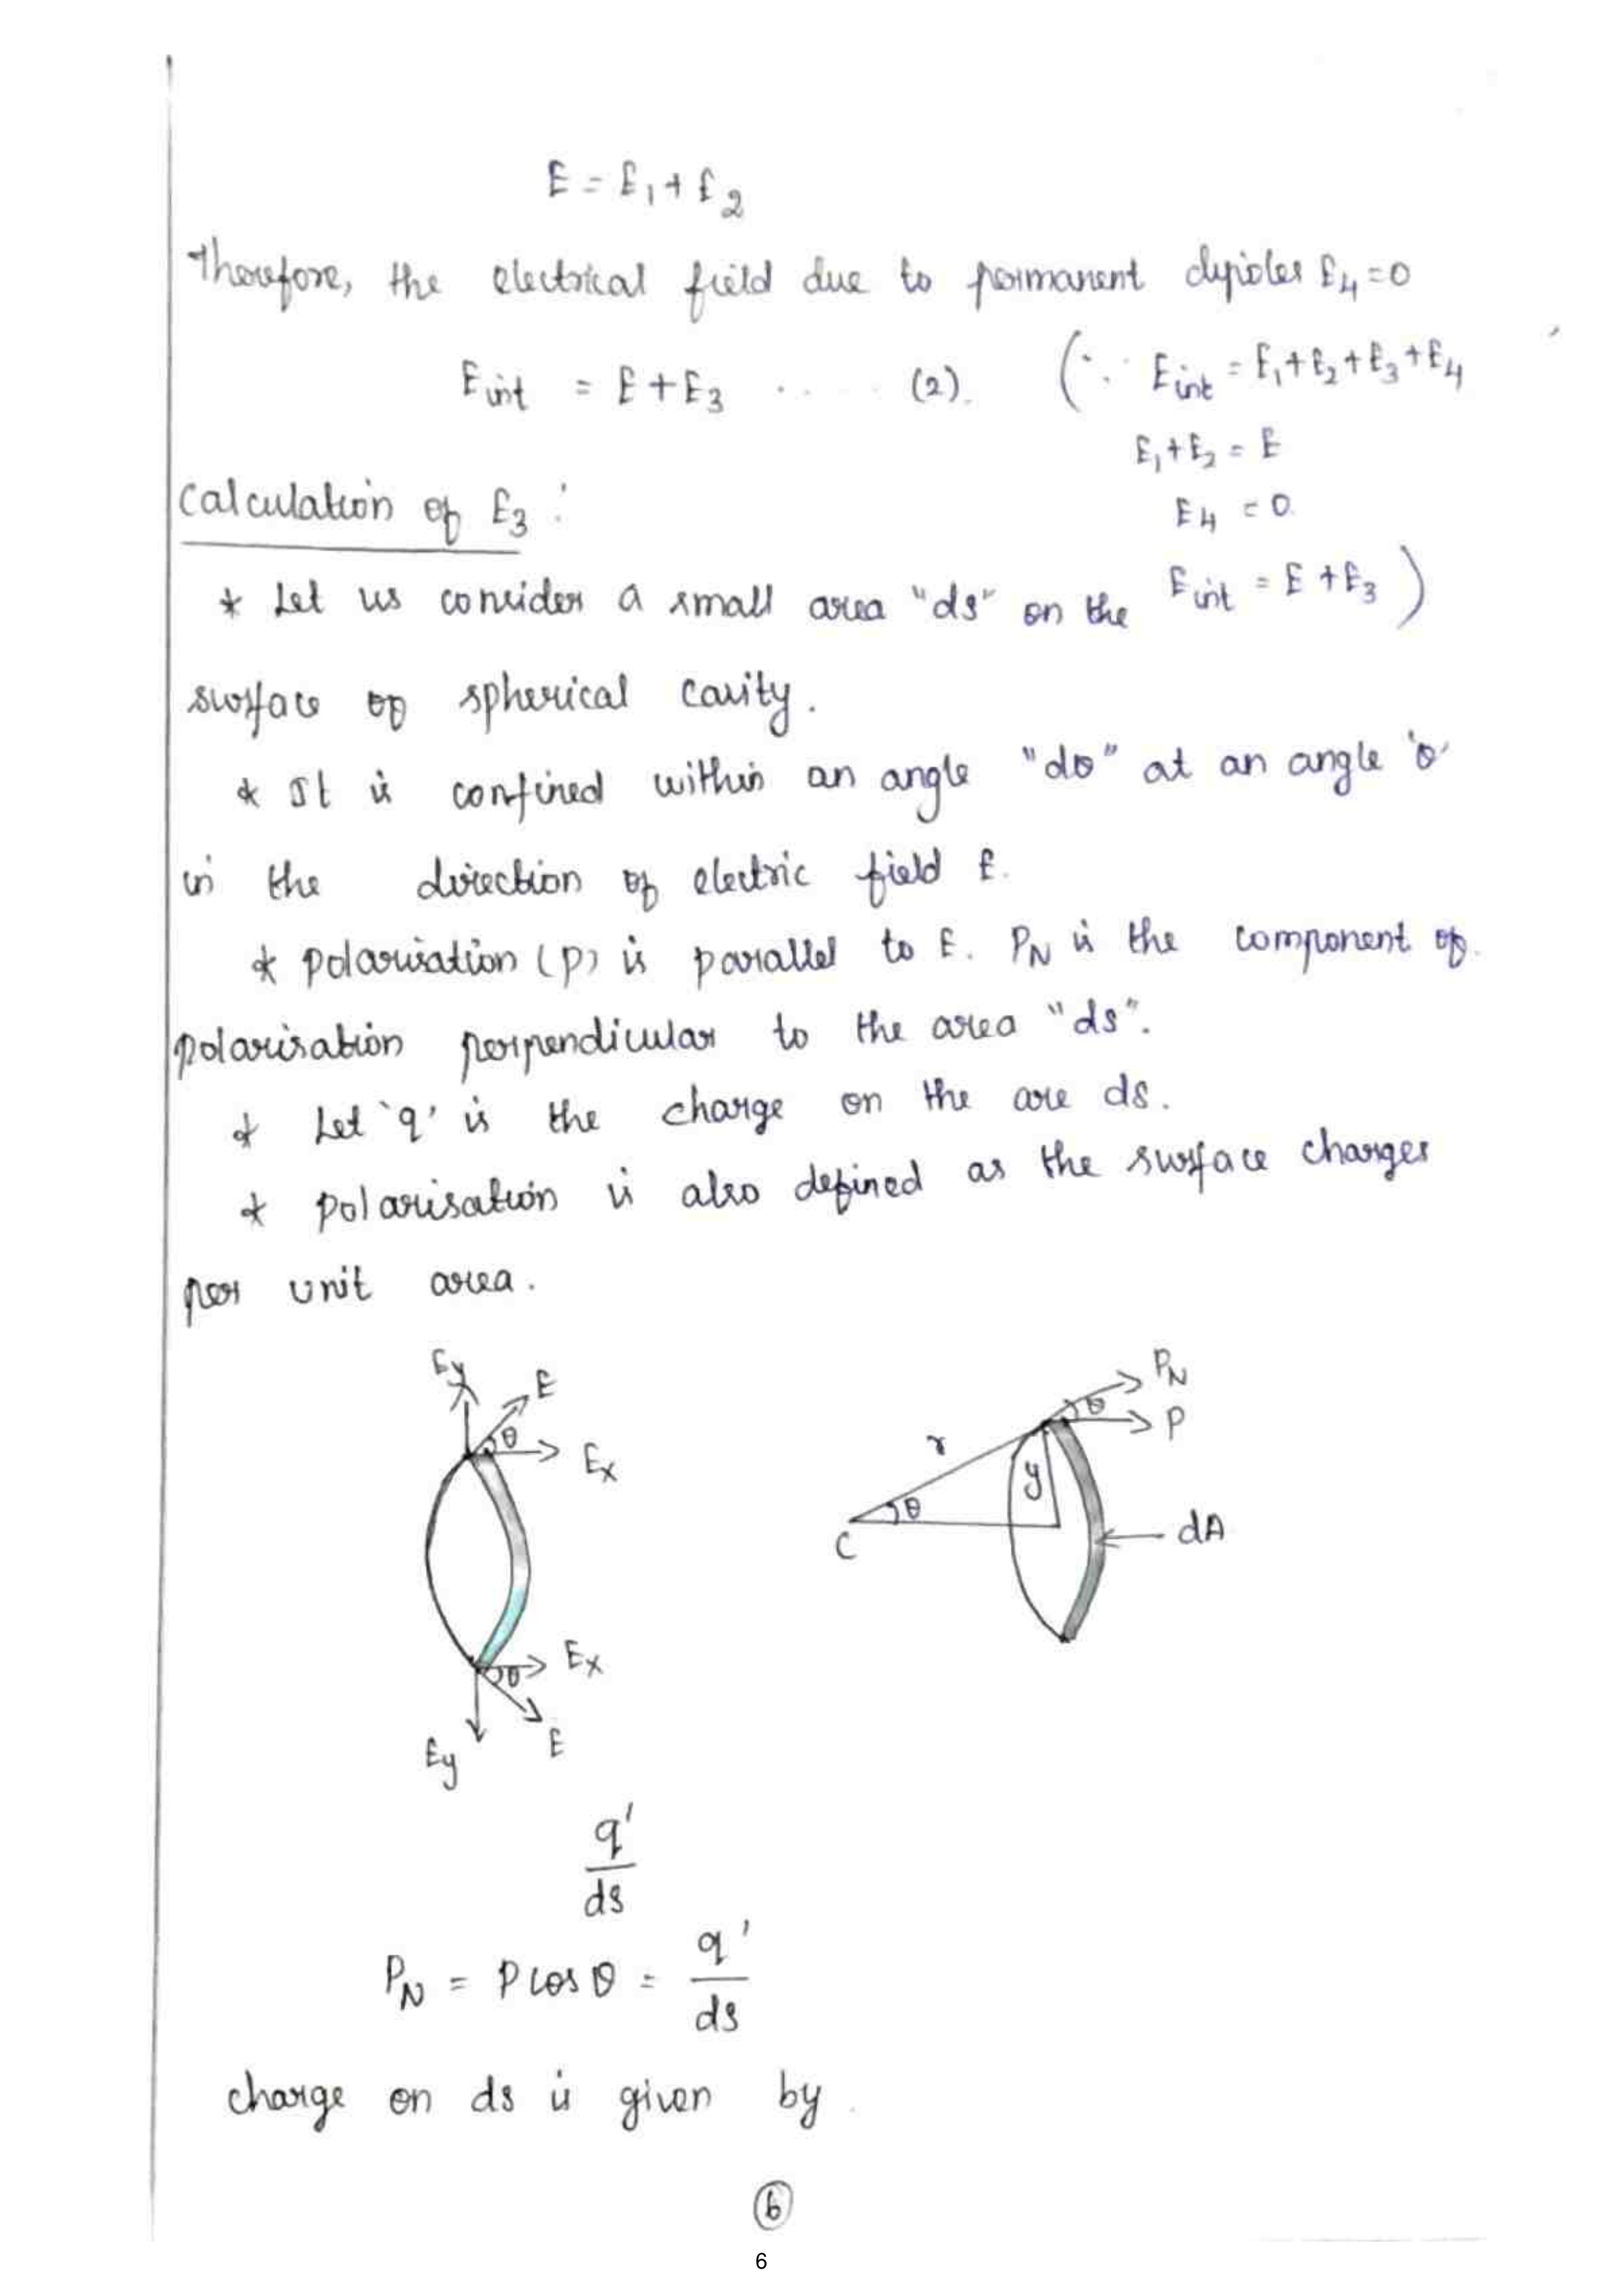 E = E₁ + E₂
Therefore, the electrical field due to permanent dipoles E₄ = 0
E int = E + E₃ ........ (2). (∵ E int = E₁ + E₂ + E₃ + E₄
E₁ + E₂ = E
calculation of E₃ :
E₄ = 0.
* Let us consider a small area "ds" on the E int = E + E₃ )
surface of spherical cavity.
* It is confined within an angle "dθ" at an angle 'θ'
in the direction of electric field E.
* polarisation (p) is parallel to E. P_N is the component of
polarisation perpendicular to the area "ds".
* Let 'q' is the charge on the are ds.
* polarisation is also defined as the surface charges
per unit area.
Ey E θ Ex
P_N θ P
r y
C θ dA
θ Ex
Ey E
q'
ds
P_N = P cos θ = q' / ds
charge on ds is given by.
6
6